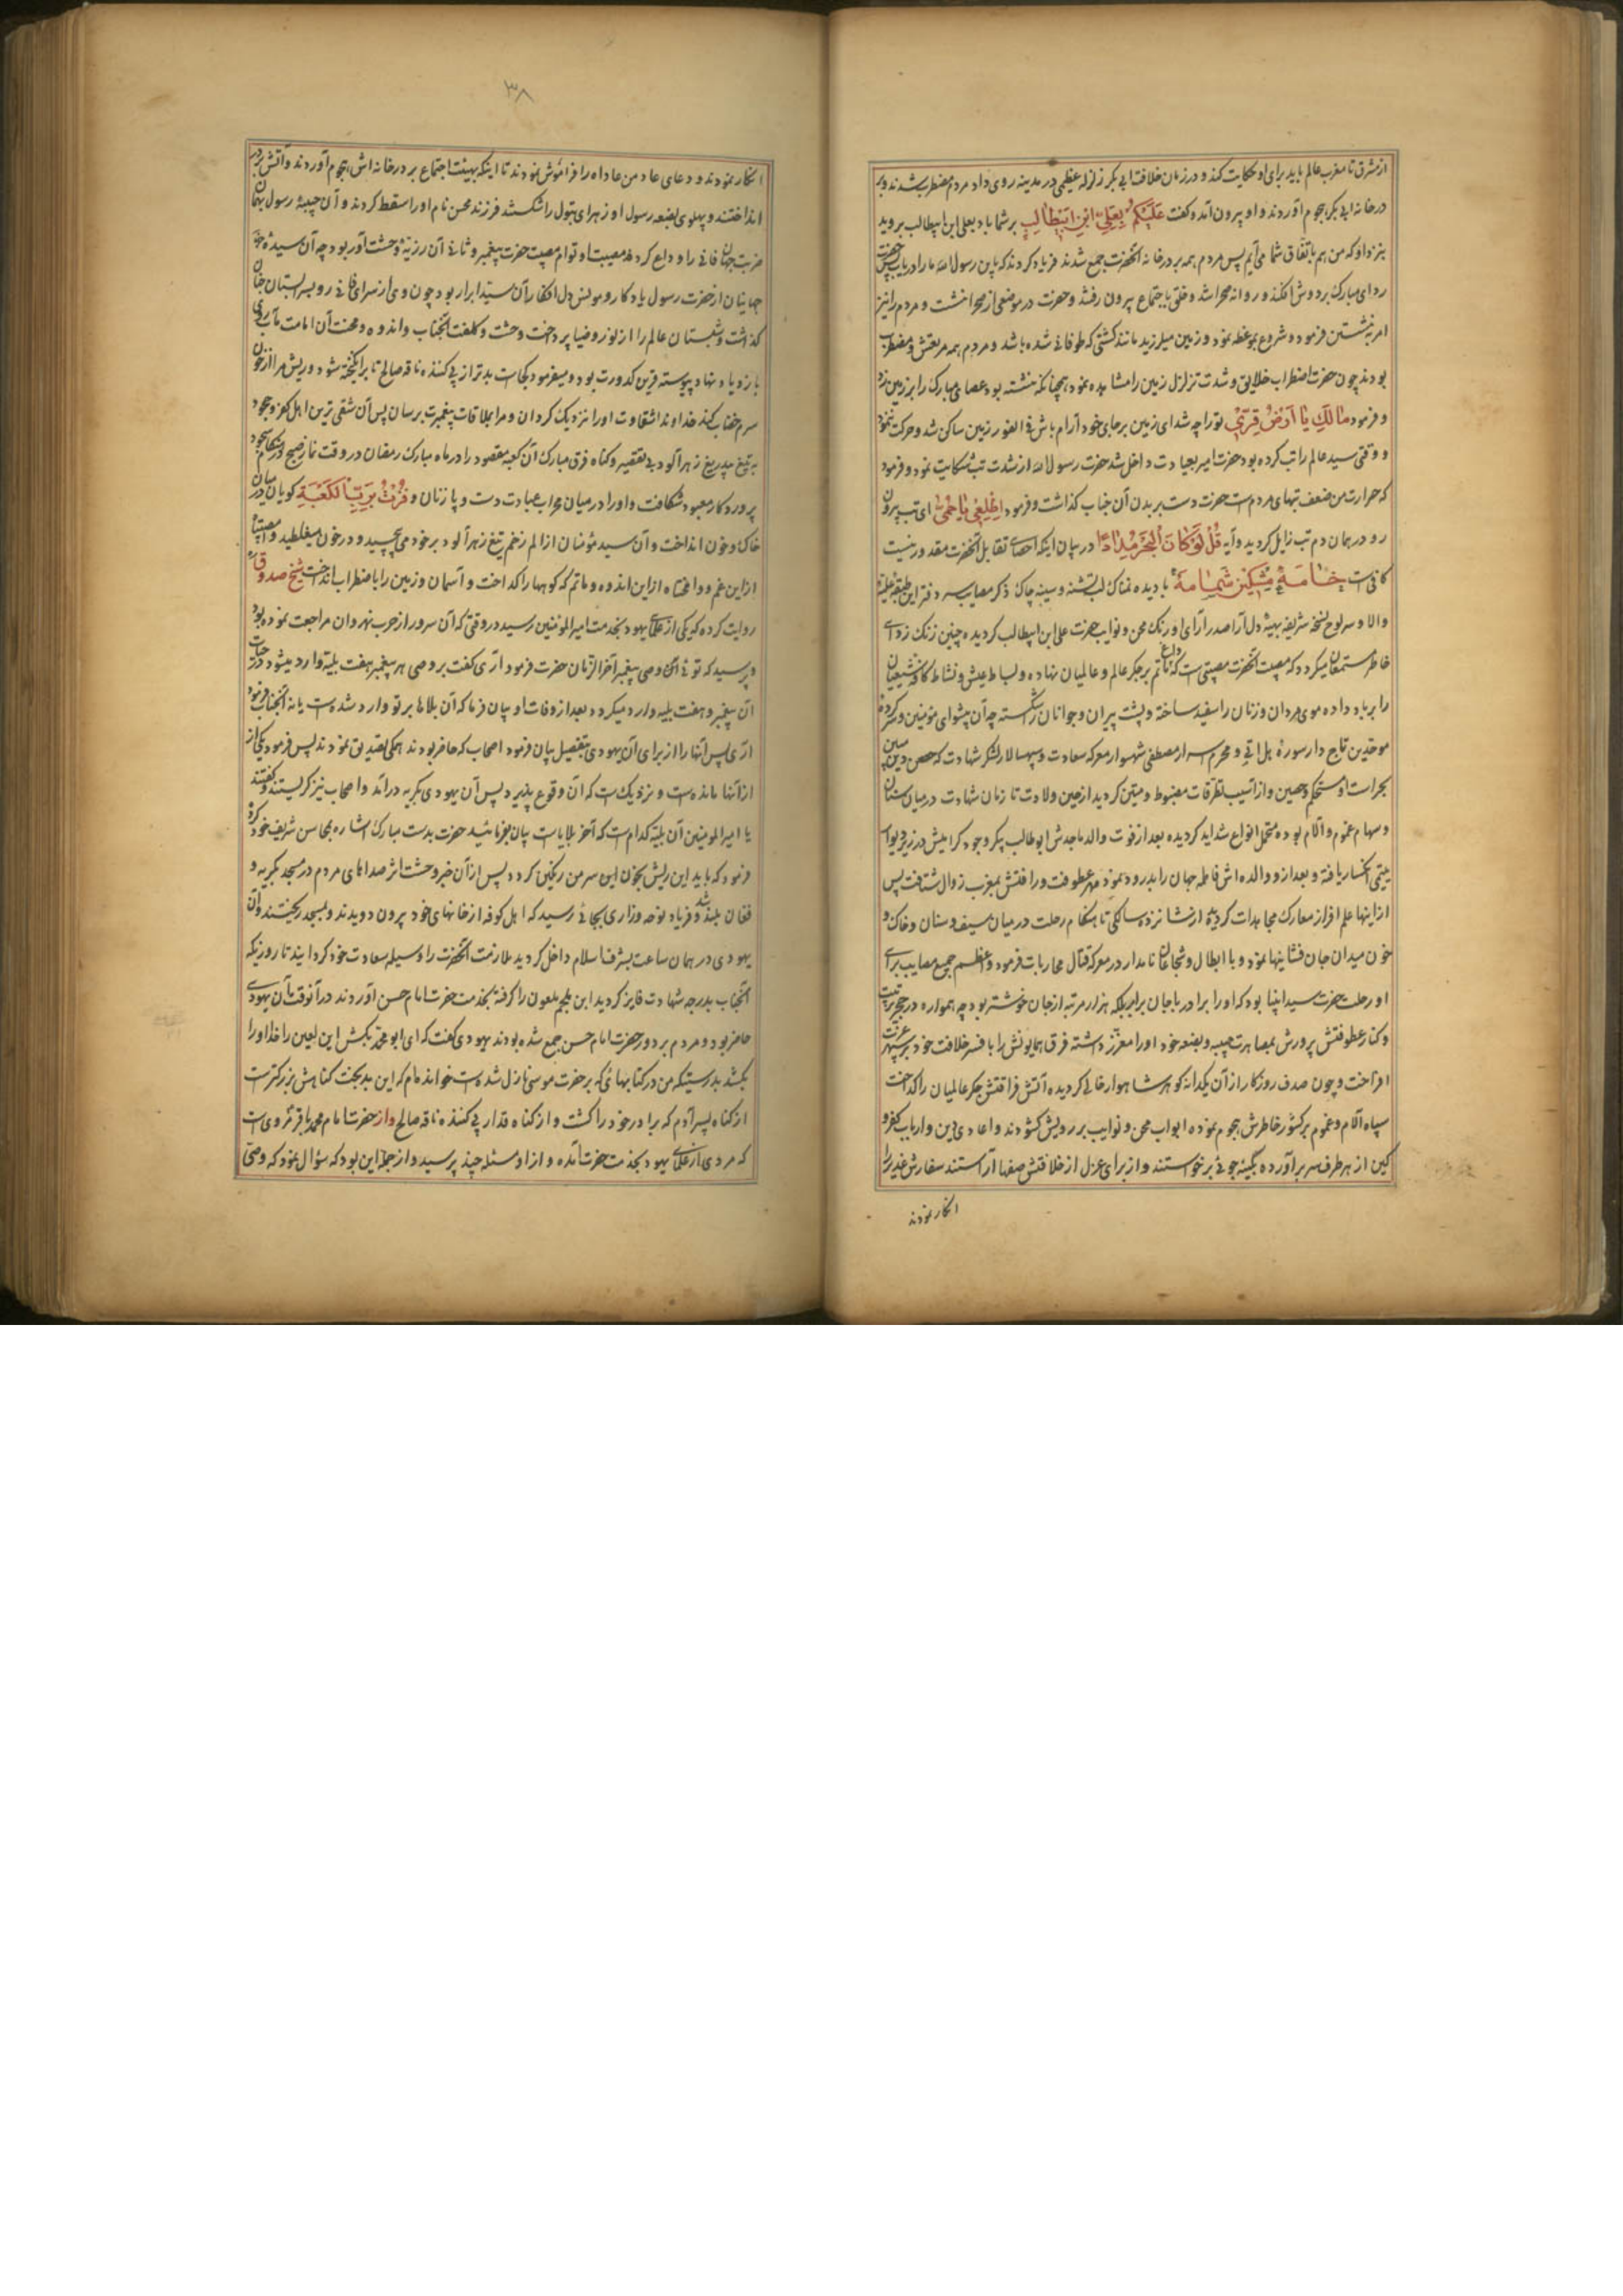 از مشرق تا مغرب عالم باید برای او حکایت کند و در زمان خلافت ابی بکر زلزله عظیمی در مدینه روی داد مردم مضطرب شدند و بر
در خانه ابی بکر هجوم آوردند و او بیرون آمد و گفت عَلَیْکُمْ بِعَلِیِّ ابْنِ ابیطالِبٍ بر شما باد بعلی ابن ابیطالب بروید
بنزد او که من هم باتفاق شما می آیم پس مردم همه بر در خانه آنحضرت جمع شدند فریاد کردند که یابن رسول الله ما را دریاب پس حضرت
ردای مبارک بر دوش افکند و روانه صحرا شد و خلق باجتماع بیرون رفتند و حضرت در موضعی از صحرا نشست و مردم را نیز
امر بنشستن فرمود و شروع بموعظه نمود و زمین میلرزید مانند کشتی که طوفانی شده باشد و مردم همه مرتعش و مضطرب
بودند چون حضرت اضطراب خلایق و شدت تزلزل زمین را مشاهده نمود همچنانکه نشسته بود عصای مبارک را بر زمین زد
و فرمود مالَکِ یا اَرْضُ قِرّی تو را چه شد ای زمین بر جای خود آرام باش فی الفور زمین ساکن شد و حرکت ننمود
و وقتی سید عالم را تب کرده بود حضرت امیر بعیادت داخل شد حضرت رسول الله از شدت تب شکایت نمود و فرمود
که حرارت من ضعف تبهای مردم است حضرت دست بر بدن آن جناب گذاشت و فرمود اِطْلِعی یا حُمّی ای تب بیرون
رو در همان دم تب زایل گردید و آیه قُلْ لَوْ کانَ الْبَحْرُ مِداداً در بیان اینکه احصای فضایل آنحضرت مقدور نیست
کافی است خامَهٔ مُشکین شَمامَه با دیده نمناک لب تشنه و سینه چاک ذکر مصایب سر دفتر این طبقه علیه
والا و سر لوح نسخه شریفه بهیه دل آرا صدر آرای اورنک محن و نوایب حضرت علی ابن ابیطالب گردیده چنین زنک زدای
خاطر مستمعان میکردد که مصیبت آنحضرت مصیبتی است که داغ ماتم بر جکر عالم و عالمیان نهاده و بساط عیش و نشاط کافه شیعیان
را بر باد داده موی مردان و زنان را سفید ساخته و پشت پیران و جوانان را شکسته چه آن پیشوای مومنین و سرکرده
موحدین تاج دار سوره هل اتی و محرم اسرار مصطفی شهسوار معرکه سعادت و سپهسالار لشکر شهادت که حصن دین مبین
بجرات او مستحکم و حصین و از آسیب تطرقات مضبوط و متین گردید از حین ولادت تا زمان شهادت در میان سنان
و سهام غموم و آلام بوده متحمل انواع شداید گردیده بعد از فوت والد ماجدش ابوطالب پیکر وجود گرامیش در زیر دیوار
یتیمی انکسار یافته و بعد از او والده اش فاطمه جهان را بدرود نمود مهر عطوفت و رافتش بمغرب زوال شتافت پس
از اینها علم افراز معارک مجاهدات گردید از شانزده سالکی تا هنکام رحلت در میان سیف و سنان و خاک و
خون میدان جان فشانیها نمود و با ابطال و شجاعان نامدار در معرکه قتال محاربات فرمود و اعظم جمیع مصایب برای
او رحلت حضرت سید انبیا بود که او را برادر با جان برابر بلکه هزار مرتبه از جان خوشتر بود چه همواره در حجر تربیت
و کنار عطوفتش پرورش بمصاهرت حبیبه و بضعه خود او را معزز داشته فرق همایونش را با فسر خلافت خود بر سپهر عزت
افراخت و چون صدف روزکار از آن یکدانه گوهر شاهوار خالی گردیده آتش فراقتش جکر عالمیان را گداخت
سپاه آلام و غموم بر کشور خاطرش هجوم نموده ابواب محن و نوایب بر رویش کشودند و اعادی دین و ارباب کفر و
کین از هر طرف سر بر آورده بکینه جوئی بر خواستند و از برای عزل از خلافتش صفها آراستند سفارش غدیر را
انکار نمودند
۳۸
انکار نمودند و دعای عاد من عاداه را فراموش نمودند تا اینکه بهیئت اجتماع بر در خانه اش هجوم آوردند و آتش بر در
انداختند و پهلوی بضعه رسول او زهرای بتول را شکستند فرزند محسن نام او را سقط کردند و آن حبیبه رسول بهمان
ضربت جهان فانی را وداع کرده مصیبت او توام مصیبت حضرت پیغمبر و ثانی آن رزیهٔ وحشت آور بود چه آن سیدهٔ
جهانیان از حضرت رسول یادکار و مونس دل افکار آن سید ابرار بود چون وی از سرای فانی رو بسرابستان جنان
گذاشت و شبستان عالم را از نور و ضیا پرداخت وحشت و کلفت آنجناب و اندوه و محنت آن امامت مآب روی
بازدیاد نهاد پیوسته قرین کدورت بود و میفرمود کجاست بدتر از پی کننده ناقه صالح تا برانکیخته شود و ریش مرا از خون
سرم خضاب کند خداوندا شقاوت او را نزدیک کردان و مرا بملاقات پیغمبرت برسان پس آن شقی ترین اهل کفر و جحود
به تیغ بیدریغ زهرآلود بی تقصیر و گناه فرق مبارک آن کعبه مقصود را در ماه مبارک رمضان در وقت نماز صبح در هنکام سجود
پروردکار معبود شکافت و او را در میان محراب عبادت دست و پا زنان و فُزْتُ بِرَبِّ الْکَعْبَةِ کویان در میان
خاک و خون انداخت و آن سید مؤمنان از الم زخم تیغ زهرآلود بر خود می پیچید و در خون میغلطید وا مصیبتا
از این غم و وا محنتاه از این اندوه و ماتم که کوهها را گداخت و آسمان و زمین را باضطراب انداخت شیخ صدوق
روایت کرده که یکی از علمای یهود بخدمت امیرالمومنین رسید در وقتی که آن سرور از حرب نهروان مراجعت نموده بود
و پرسید که توئی آنکه وصی پیغمبر آخر الزمان حضرت فرمود آری گفت بر وصی هر پیغمبر هفت بلیه وارد میشود در حیات
آن پیغمبر و هفت بلیه وارد میکردد بعد از وفات او بیان فرما که آن بلاها بر تو وارد شده است یا نه آنجناب فرمود
آری پس آنها را از برای آن یهودی بتفصیل بیان فرمود اصحاب که حاضر بودند همگی تصدیق نمودند پس فرمود یکی از
از آنها مانده است و نزدیک است که آن وقوع پذیرد پس آن یهودی بگریه درآمد و اصحاب نیز گریستند و گفتند
یا امیر المومنین آن بلیه کدام است که آخر بلایاست بیان بفرمائید حضرت بدست مبارک اشاره بمحاسن شریف خود کرده
فرمود که باید این ریش بخون این سر من رنگین کردد پس از آن خبر وحشت اثر صداهای مردم در مسجد بگریه و
فغان بلند شد و فریاد نوحه و زاری بجائی رسید که اهل کوفه از خانهای خود بیرون دویدند و بمسجد ریختند و آن
یهودی در همان ساعت بشرف اسلام داخل گردید ملازمت آنحضرت را وسیله سعادت خود کردانید تا روزیکه
آنجناب بدرجه شهادت فایز گردید ابن ملجم ملعون را گرفته بخدمت حضرت امام حسن آوردند در آنوقت آن یهودی
حاضر بود و مردم بر دور حضرت امام حسن جمع شده بودند یهودی گفت که ای ابو محمد بکش این لعین را خدا او را
بکشد بدرستیکه من در کتابهائی که بر حضرت موسی نازل شده است خوانده ام که این بدبخت گناهش بزرکتر است
از گناه پسر آدم که برادر خود را کشت و از گناه قدار پی کننده ناقه صالح و از حضرت امام محمد باقر مروی است
که مردی از علمای یهود بخدمت حضرت آمده و از او مسئله چند پرسید و از جمله این بود که سؤال نمود که وصی